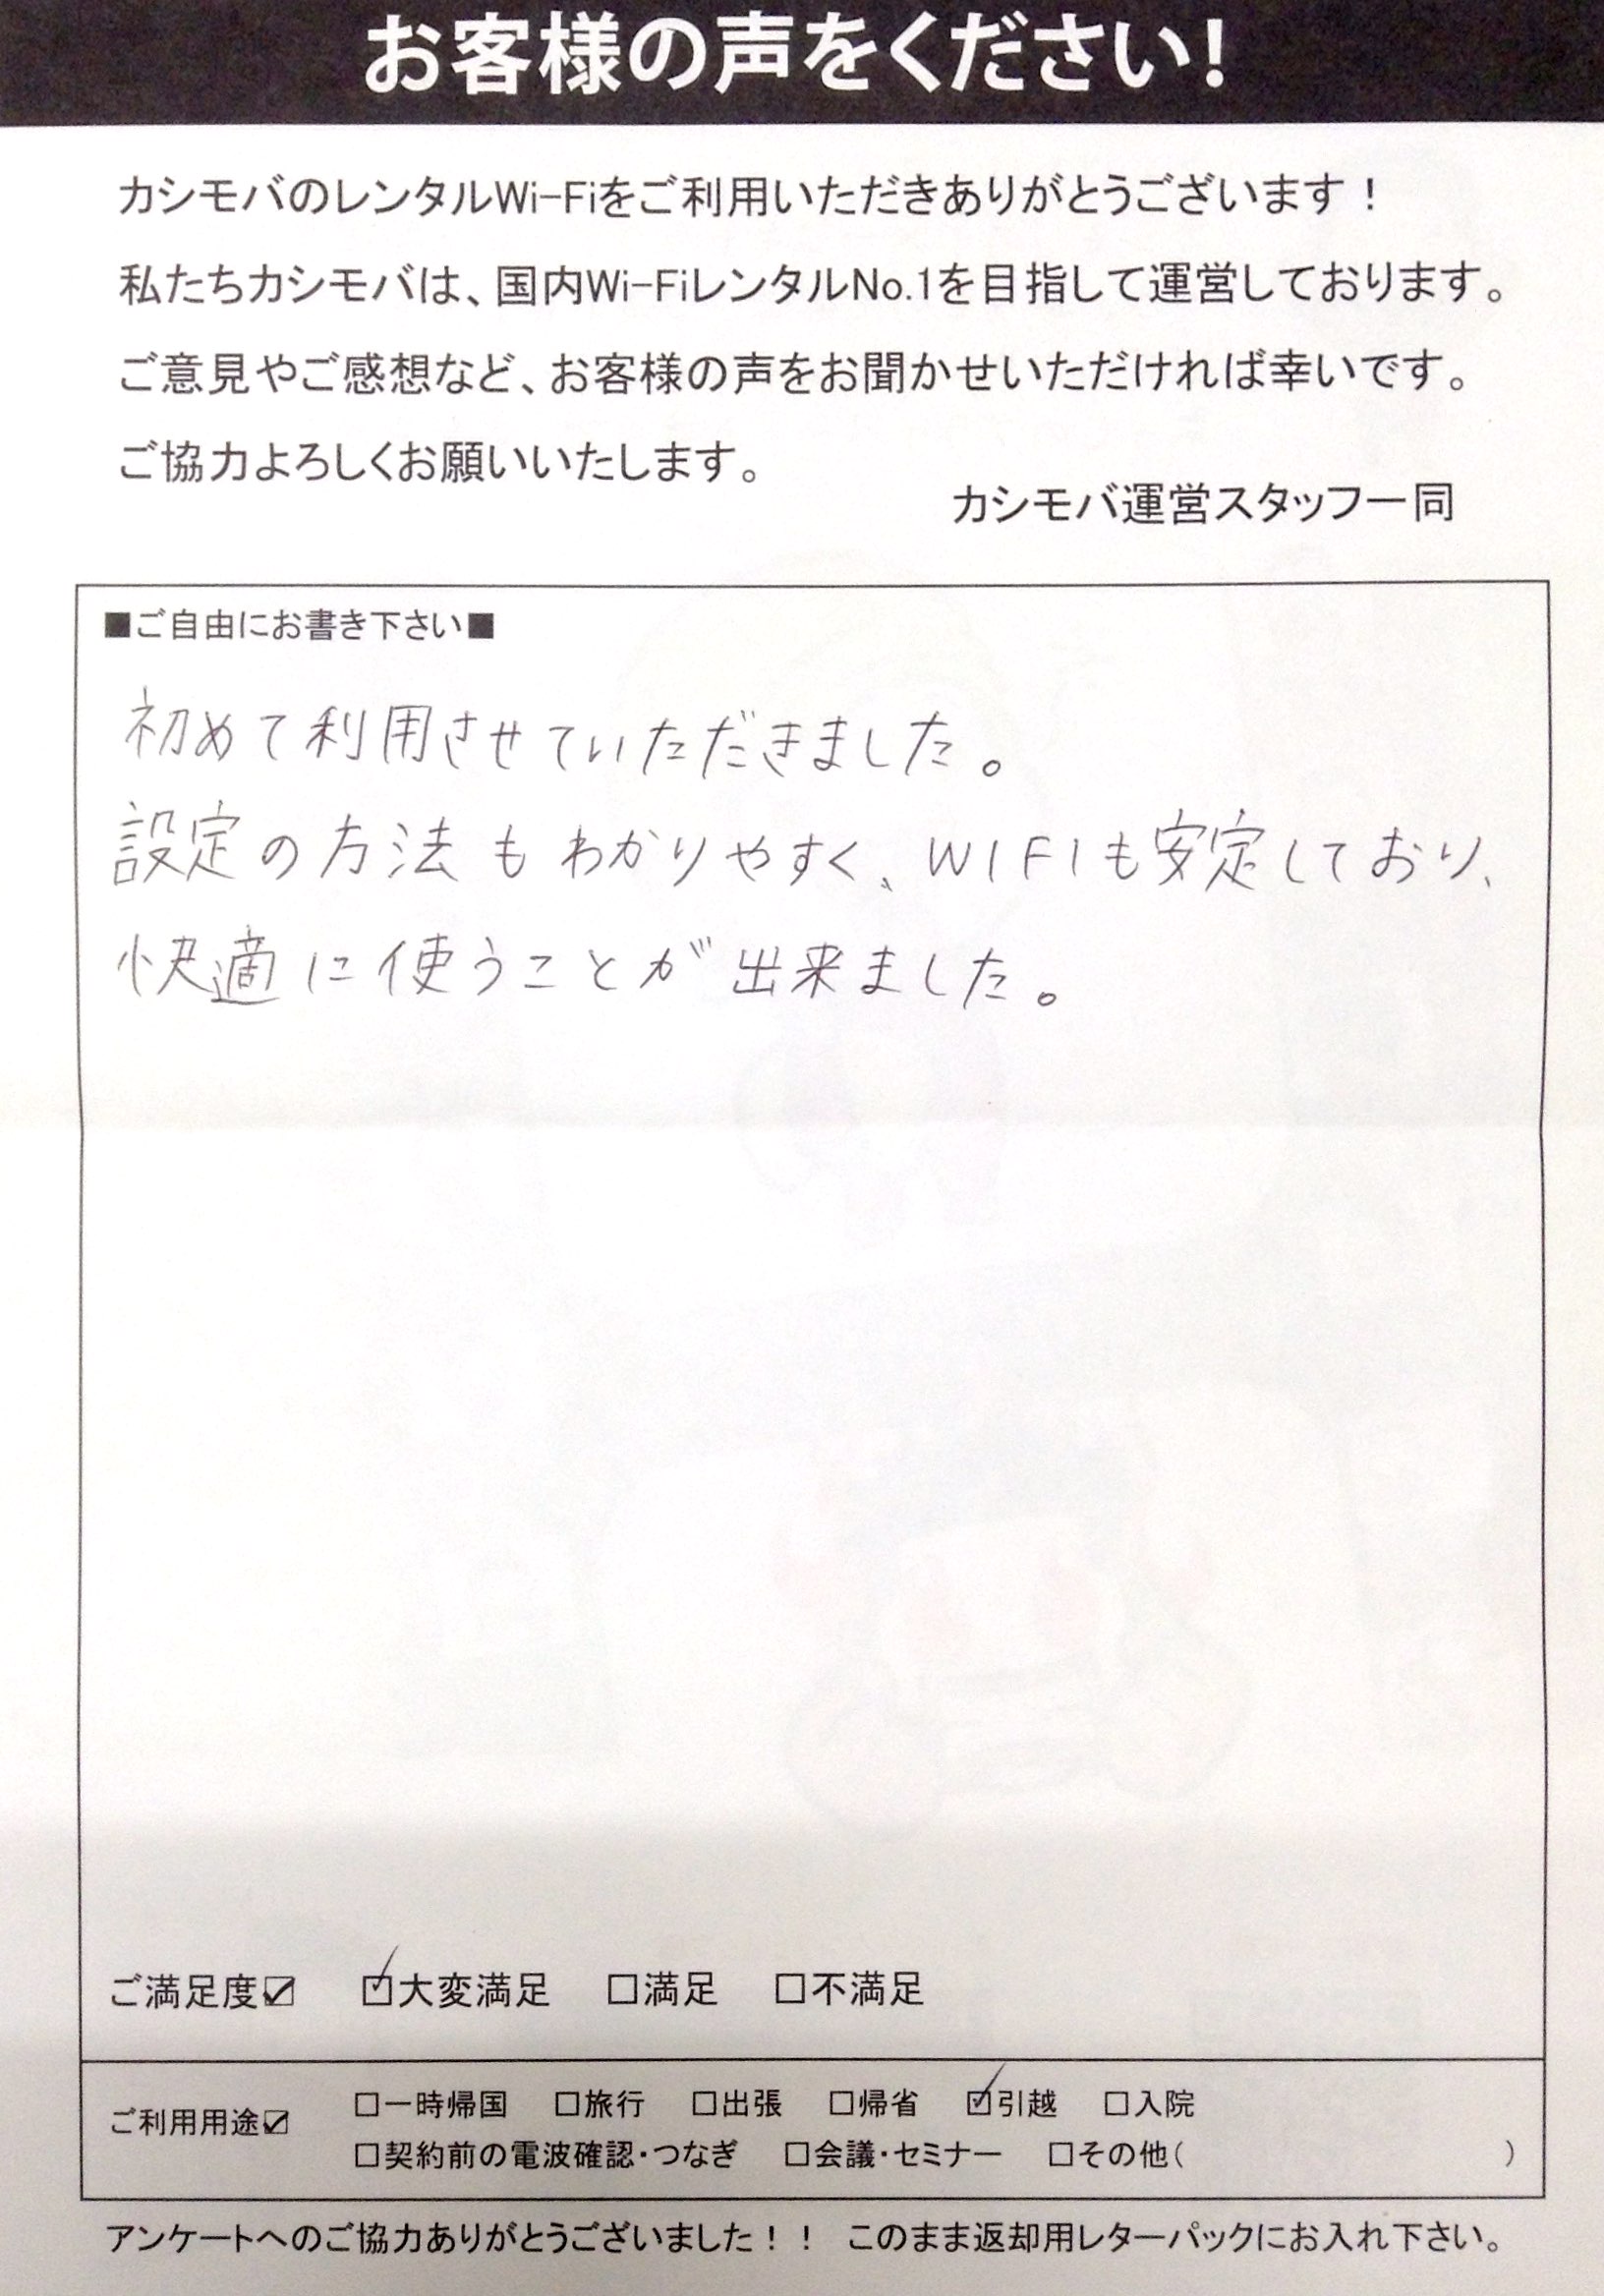 お客様の声をください!
カシモバのレンタルWi-Fiをご利用いただきありがとうございます！
私たちカシモバは、国内Wi-FiレンタルNo.1を目指して運営しております。
ご意見やご感想など、お客様の声をお聞かせいただければ幸いです。
ご協力よろしくお願いいたします。
カシモバ運営スタッフ一同
■ご自由にお書き下さい■
初めて利用させていただきました。
設定の方法もわかりやすく、WIFIも安定しており、
快適に使うことが出来ました。
ご満足度☑ ☑大変満足 □満足 □不満足
ご利用用途☑ □一時帰国 □旅行 □出張 □帰省 ☑引越 □入院
□契約前の電波確認・つなぎ □会議・セミナー □その他( )
アンケートへのご協力ありがとうございました！！ このまま返却用レターパックにお入れ下さい。